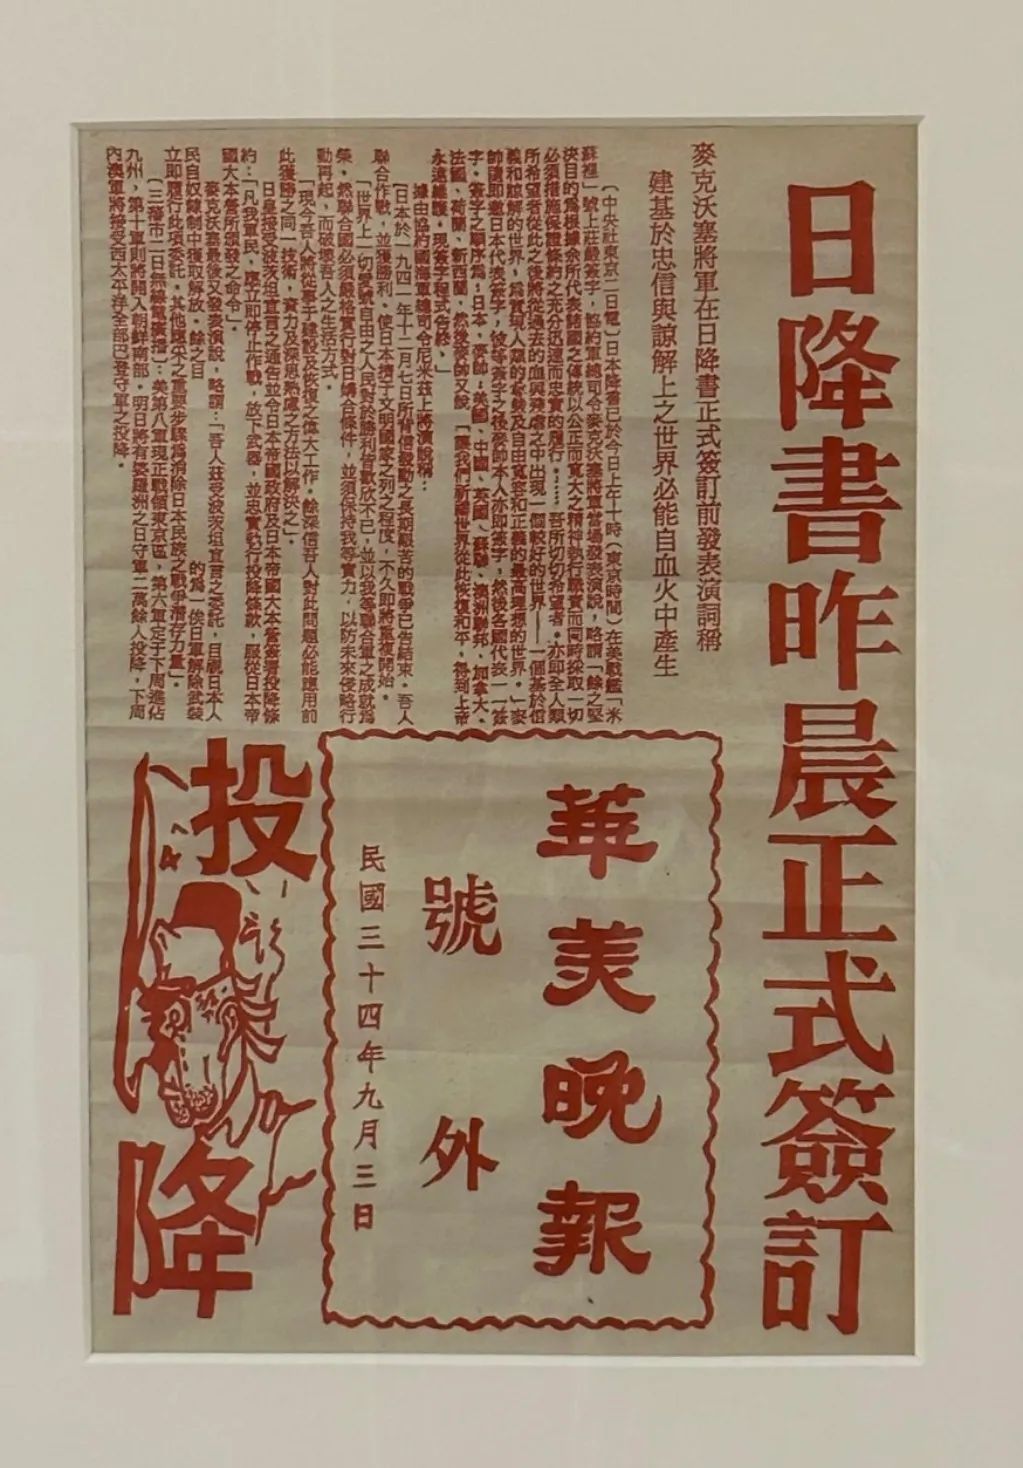 日降書昨晨正式簽訂
麥克沃塞將軍在日降書正式簽訂前發表演詞稱
建基於忠信與諒解上之世界必能自血火中產生
（中央社東京二日電）日本降書已於今日上午十時（東京時間）在美戰艦「米
蘇裡」號上莊嚴簽字，協約軍總司令麥克沃塞將軍當場發表演說，略謂「餘之堅
決目的為根據余所代表諸國之傳統以公正而寬大之精神執行職責而同時採取一切
必須措施保證條約之充分迅速而忠實的履行。……吾所切切希望者，亦即全人類
所希望者從此之後將從過去的血與殘虐之中出現一個較好的世界——一個基於信
義和諒解的世界，為實現人類的尊嚴及自由寬容和正義的最高理想的世界。」麥
帥隨即邀日本代表簽字，彼等簽字之後麥帥本人亦即簽字，然後各國代表一一簽
字。簽字之順序為：日本，麥帥；美國、中國、英國、蘇聯、澳洲聯邦、加拿大、
法國、荷蘭、新西蘭，然後麥帥又說「讓我們祈禱世界從此恢復和平，得到上帝
永遠維護。現簽字程式告終。」
據由協約國海軍總司令尼米茲上將演說稱：
「日本於一九四一年十二月七日所背信發動之長期艱苦的戰爭已告結束。吾人
聯合作戰，並獲勝利。使日本擠于文明國家之列之程度，不久即將重複開始。
「世界上一切愛號自由之人民對於勝利皆歡欣不已，並以我等聯合軍之成就為
榮。然聯合國必須嚴格實行對日媾合條件，並須保持我等實力，以防未來侵略行
動再起，而破壞吾人之生活方式。
「現今吾人將從事于建設及恢復之偉大工作。餘深信吾人對此問題必能應用前
此獲勝之同一技術，資力及深思熟慮之方法以解決之」。
日皇接受波茨坦宣言之通告並令日本帝國政府及日本帝國大本營簽署投降條
約：「凡我軍民，應立即停止作戰，放下武器，並忠實執行投降條款，服從日本帝
國大本營所頒發之命令」。
麥克沃塞最後又發表演說，略謂：「吾人茲受波茨坦宣言之委託，目覩日本人
民自奴隸制中獲取解放。餘之目的為一俟日軍解除武裝
立即履行此項委託。其他應采之重要步驟為消除日本民族之戰爭潛存力量」。
（三藩市二日無線電廣播）：美第八軍現正戰領東京區，第六軍定于下周進佔
九州，第十軍則將開入朝鮮南部。明日將有婆羅洲之日守軍二萬餘人投降，下周
內澳軍將接受西太平洋全部已登守軍之投降。
華美晚報
號外
民國三十四年九月三日
投降